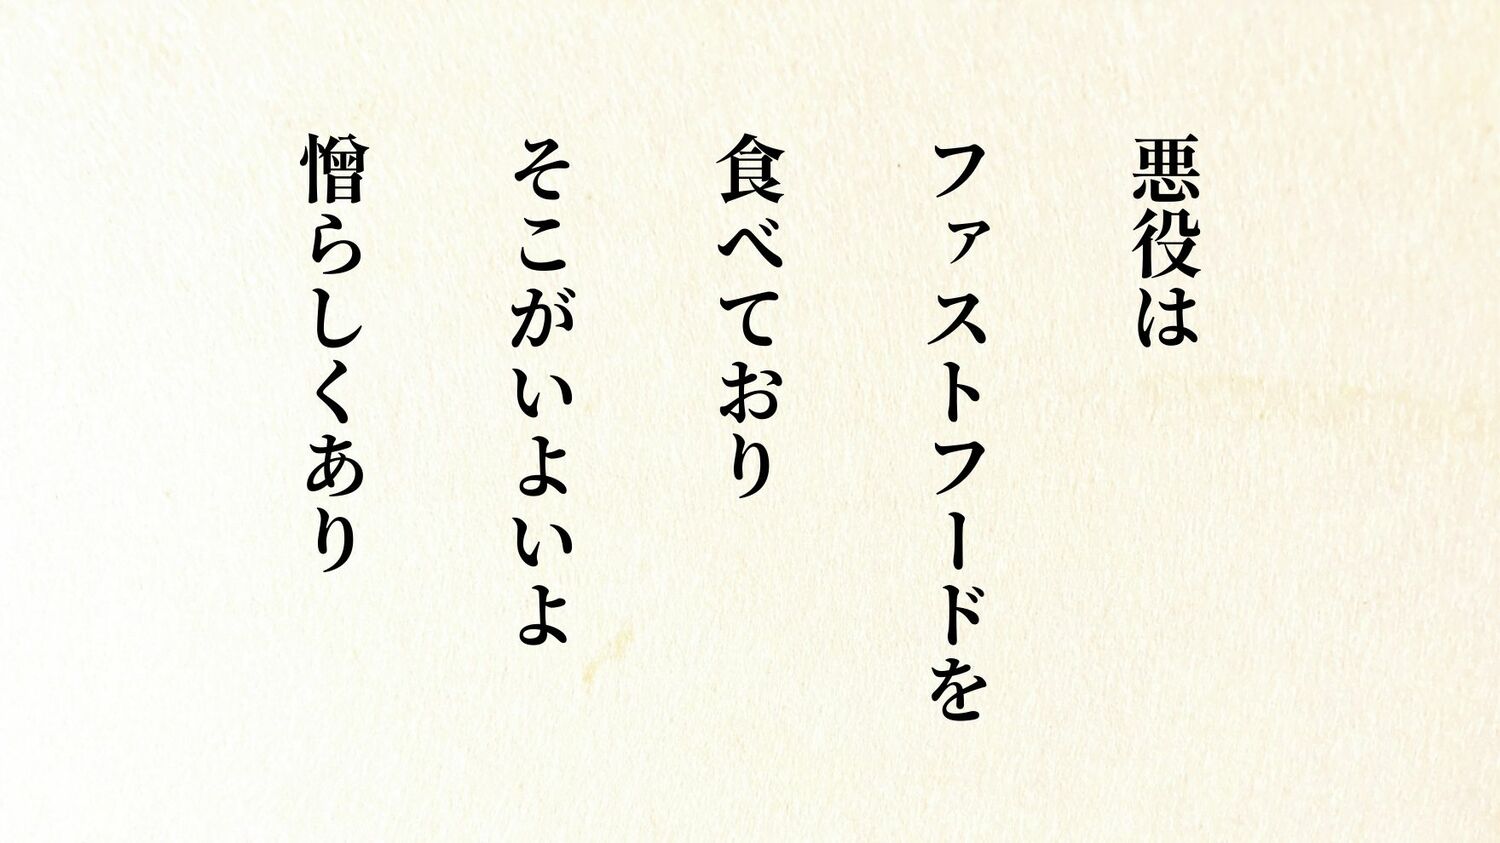 悪役は
ファストフードを
食べており
そこがいよいよ
憎らしくあり